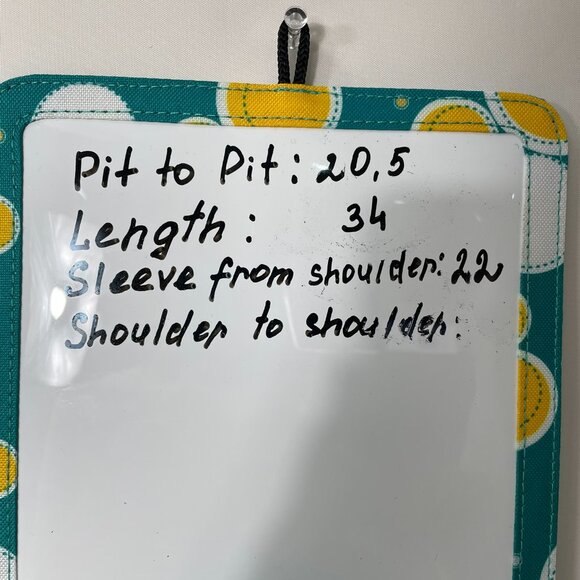 Pit to Pit: 20,5
Length: 34
Sleeve from shoulder: 22
Shoulder to shoulder: